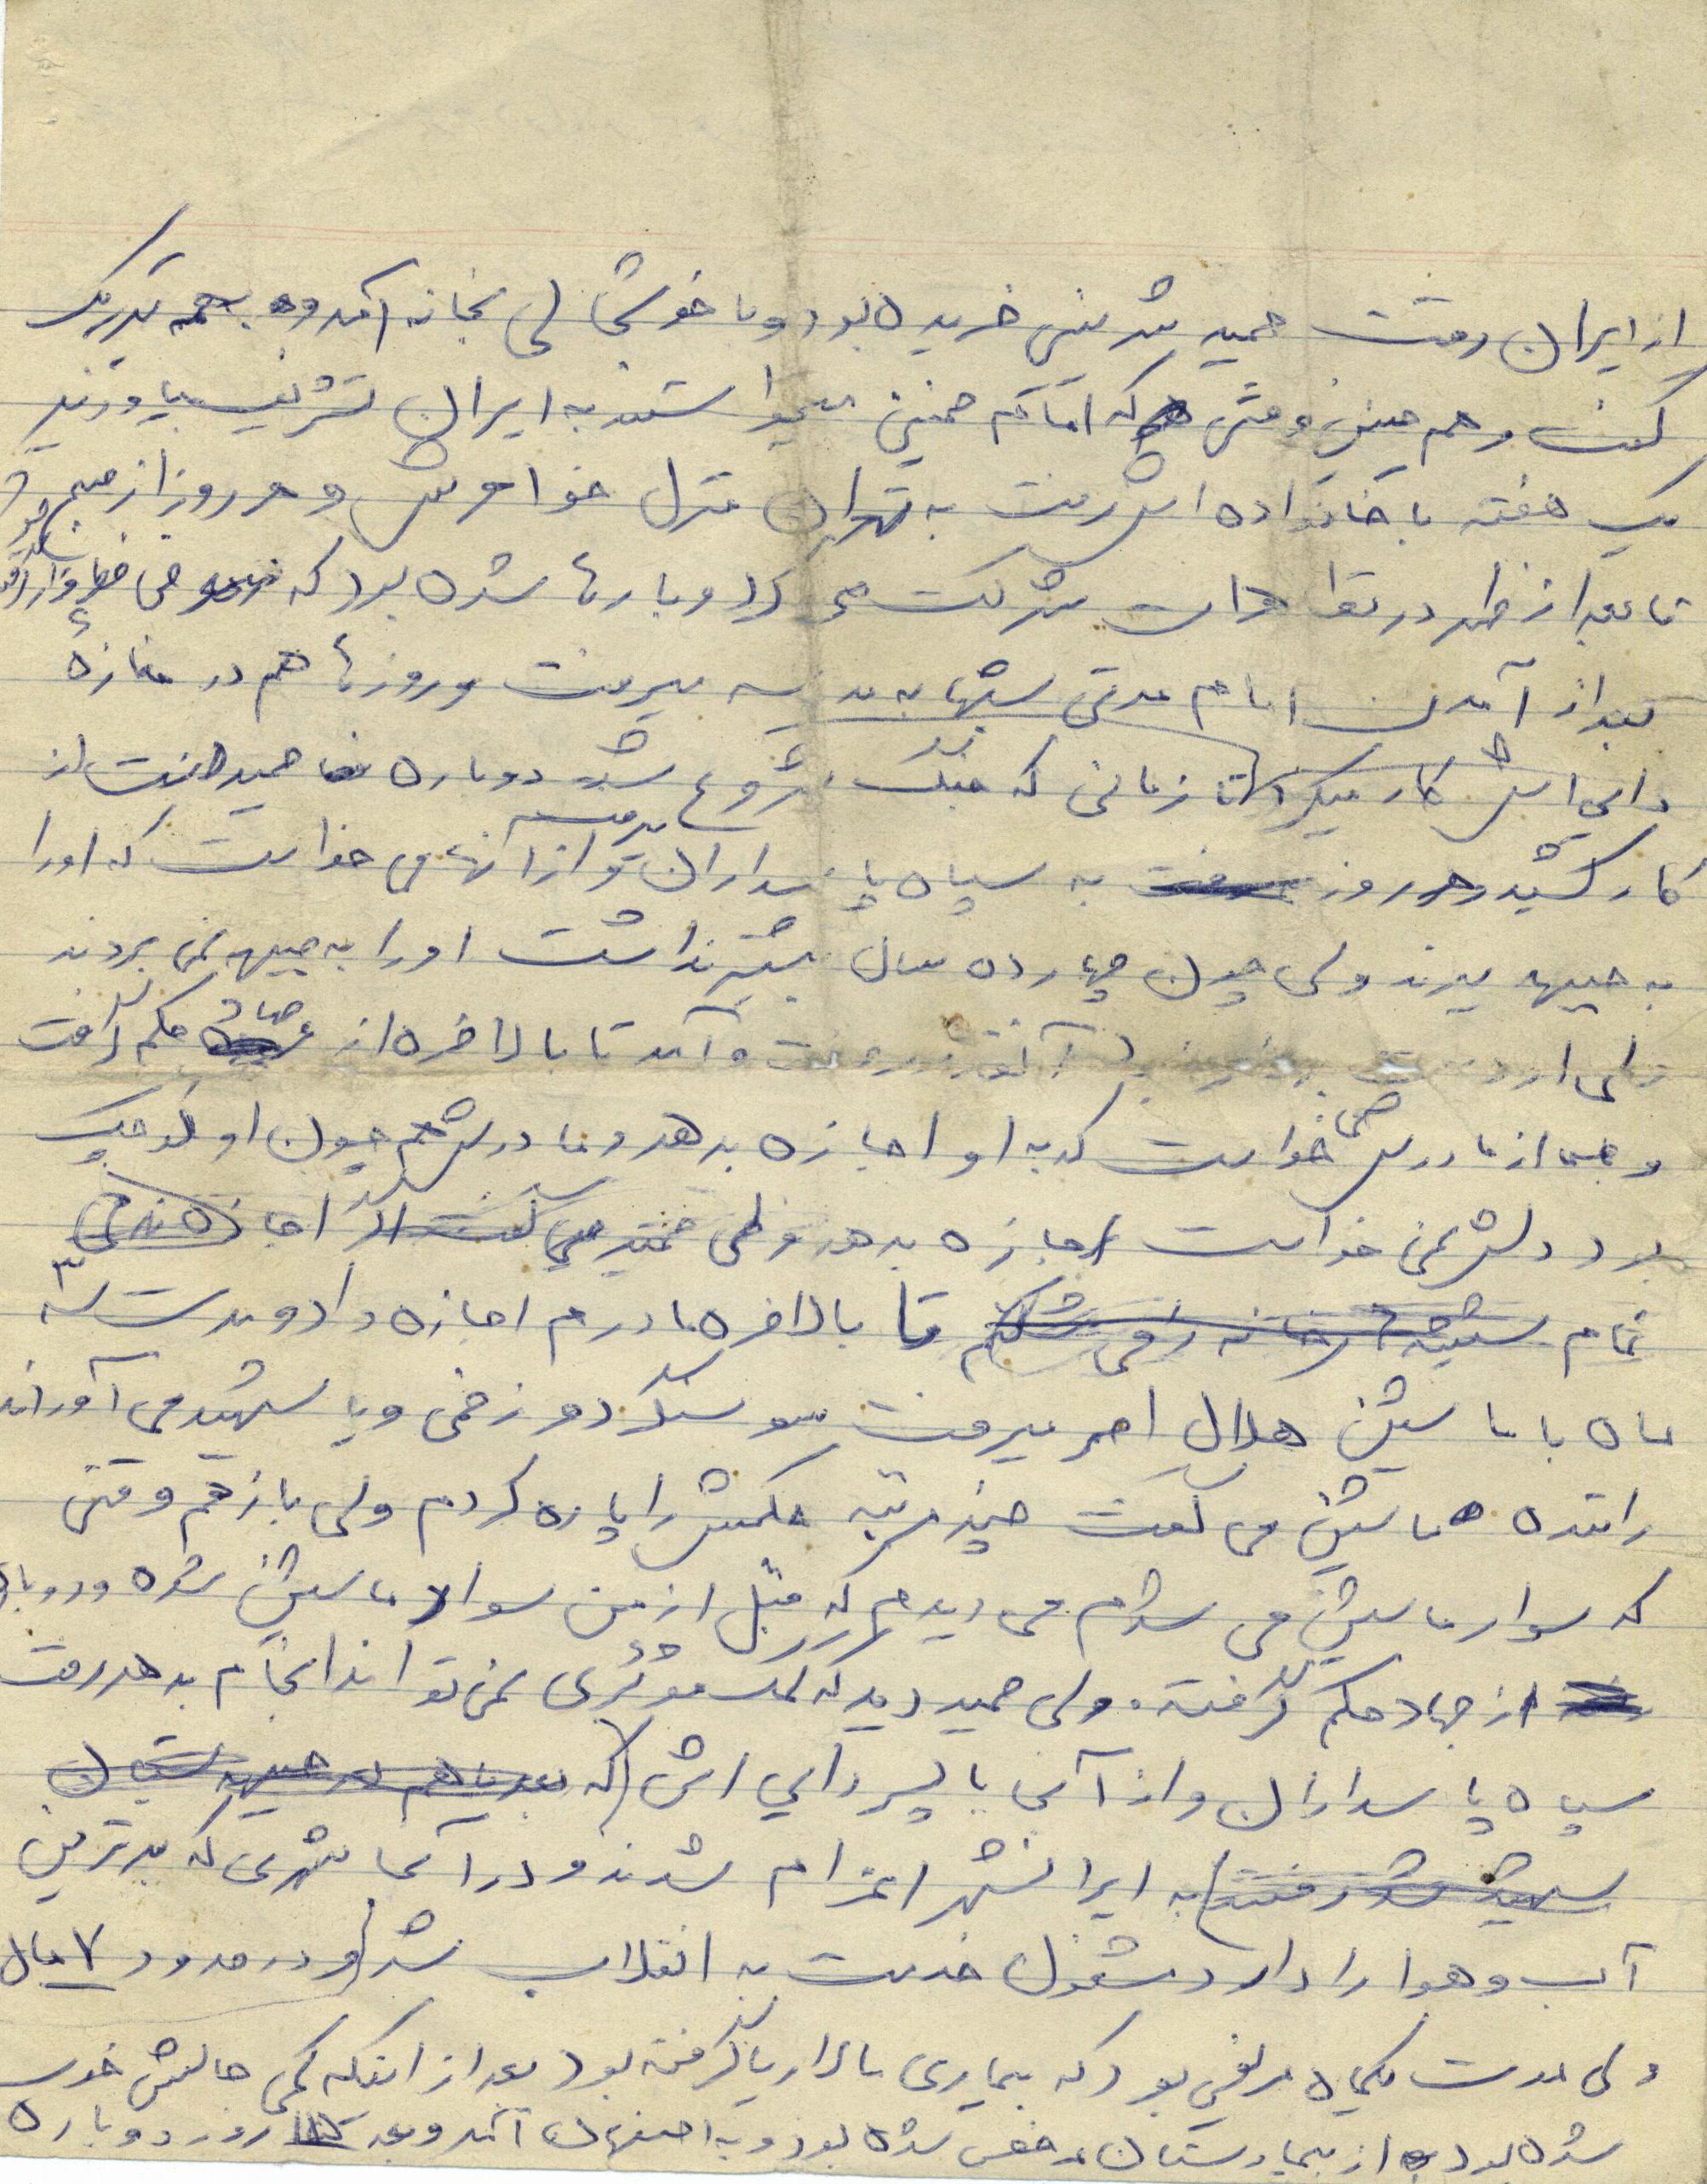 از ایران رفت حمید شرینی خریده بود و با خوشحالی بخانه آمد و به همه تبریک
گفت و هم چنین وقتی که امام خمینی میخواستند به ایران تشریف بیاورند
یک هفته با خانواده اش رفت به تهران منزل خواهرش و هر روز از صبح
تا بعد از ظهر در تظاهرات شرکت می کرد و بارها شده بود که
بعد از آمدن امام مدتی شبها به مدرسه میرفت و روزها هم در مغازهٔ
دایی اش کار میکرد تا زمانی که جنگ شروع شد دوباره حمید دست از
کار کشید هر روز میرفت به سپاه پاسداران و از آنها می خواست که او را
به جبهه ببرند ولی چون چهارده سال بیشتر نداشت او را به جبهه نمی بردند
ولی او دست آنقدر رفت و آمد تا بالاخره از جهاد حکم گرفت
و از مادرش می خواست که به او اجازه بدهد و مادرش هم چون او کوچک
بود دلش نمی خواست اجازه بدهد ولی حمید می گفت اگر اجازه ندهی
تمام شیشه خانه را می شکنم تا بالاخره مادرم اجازه داد و مدت ۳
ماه با ماشین هلال احمر میرفت سوسنگرد و زخمی و یا شهید می آوردند
راننده ماشین می گفت چند مرتبه حکمش را پاره کردم ولی باز هم وقتی
که سوار ماشین می شدم می دیدم که قبل از من سوار ماشین شده و دوباره
از جهاد حکم گرفته. ولی حمید دید که کمک موثری نمی تواند انجام بدهد رفت
سپاه پاسداران و از آنجا با پسر دایی اش (که بعد با هم در جبهه بستان
شهید شد رفتند) به ایرانشهر اعزام شدند و در آنجا شهری که بدترین
آب و هوا را دارد مشغول خدمت به انقلاب شد و در حدود ۷ ماه
ولی مدت یکماه مریض بود که بیماری مالاریا گرفته بود بعد از اینکه کمی حالش خوب
شده بود از بیمارستان مرخص شده بود و به اصفهان آمد و بعد روز دوباره